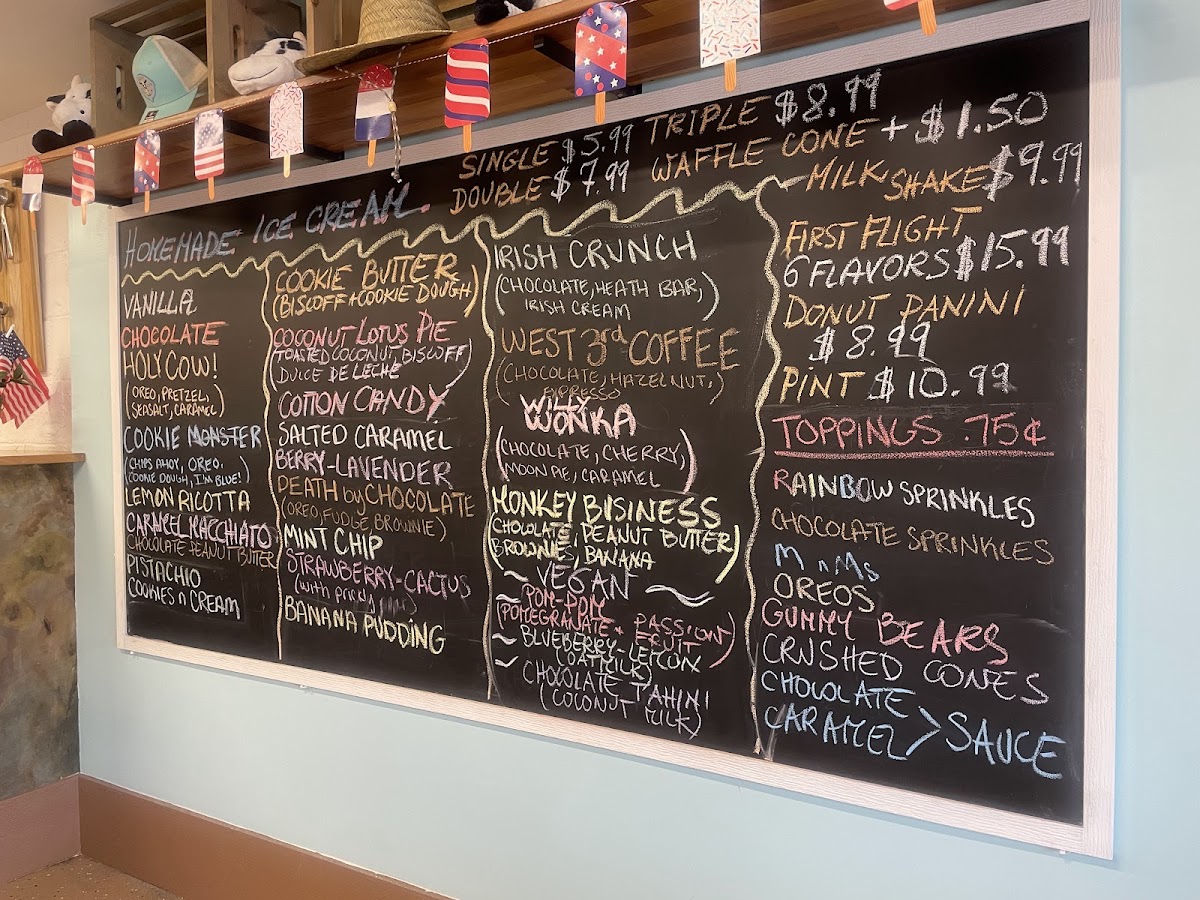 HOMEMADE ICE CREAM.
SINGLE $5.99
DOUBLE $7.99
TRIPLE $8.99
WAFFLE CONE + $1.50
MILK SHAKE $9.99
VANILLA
CHOCOLATE
HOLY COW!
(OREO, PRETZEL,
SEASALT, CARAMEL)
COOKIE MONSTER
(CHIPS AHOY, OREO.
COOKIE DOUGH, I'M BLUE!)
LEMON RICOTTA
CARAMEL MACCHIATO
CHOCOLATE PEANUT BUTTER
PISTACHIO
COOKIES n CREAM
COOKIE BUTTER
(BISCOFF + COOKIE DOUGH)
COCONUT LOTUS PIE
(TOASTED COCONUT, BISCOFF
DULCE DE LECHE)
COTTON CANDY
SALTED CARAMEL
BERRY-LAVENDER
DEATH by CHOCOLATE
(OREO, FUDGE, BROWNIE)
MINT CHIP
STRAWBERRY-CACTUS
(with
BANANA PUDDING
IRISH CRUNCH
(CHOCOLATE, HEATH BAR,
IRISH CREAM)
WEST 3rd COFFEE
(CHOCOLATE, HAZELNUT,
EXPRESSO)
WONKA
(CHOCOLATE, CHERRY,
MOON PIE, CARAMEL)
MONKEY BUSINESS
CHOCOLATE, PEANUT BUTTER
BROWNIES, BANANA)
~ VEGAN ~
POM-POM
(POMEGRANATE + PASSION
FRUIT)
~ BLUEBERRY-LEMON
(OATMILK)
~ CHOCOLATE TAHINI
(COCONUT MILK)
FIRST FLIGHT
6 FLAVORS $15.99
DONUT PANINI
$8.99
PINT $10.99
TOPPINGS .75¢
RAINBOW SPRINKLES
CHOCOLATE SPRINKLES
M n Ms
OREOS
GUMMY BEARS
CRUSHED CONES
CHOCOLATE
CARAMEL > SAUCE